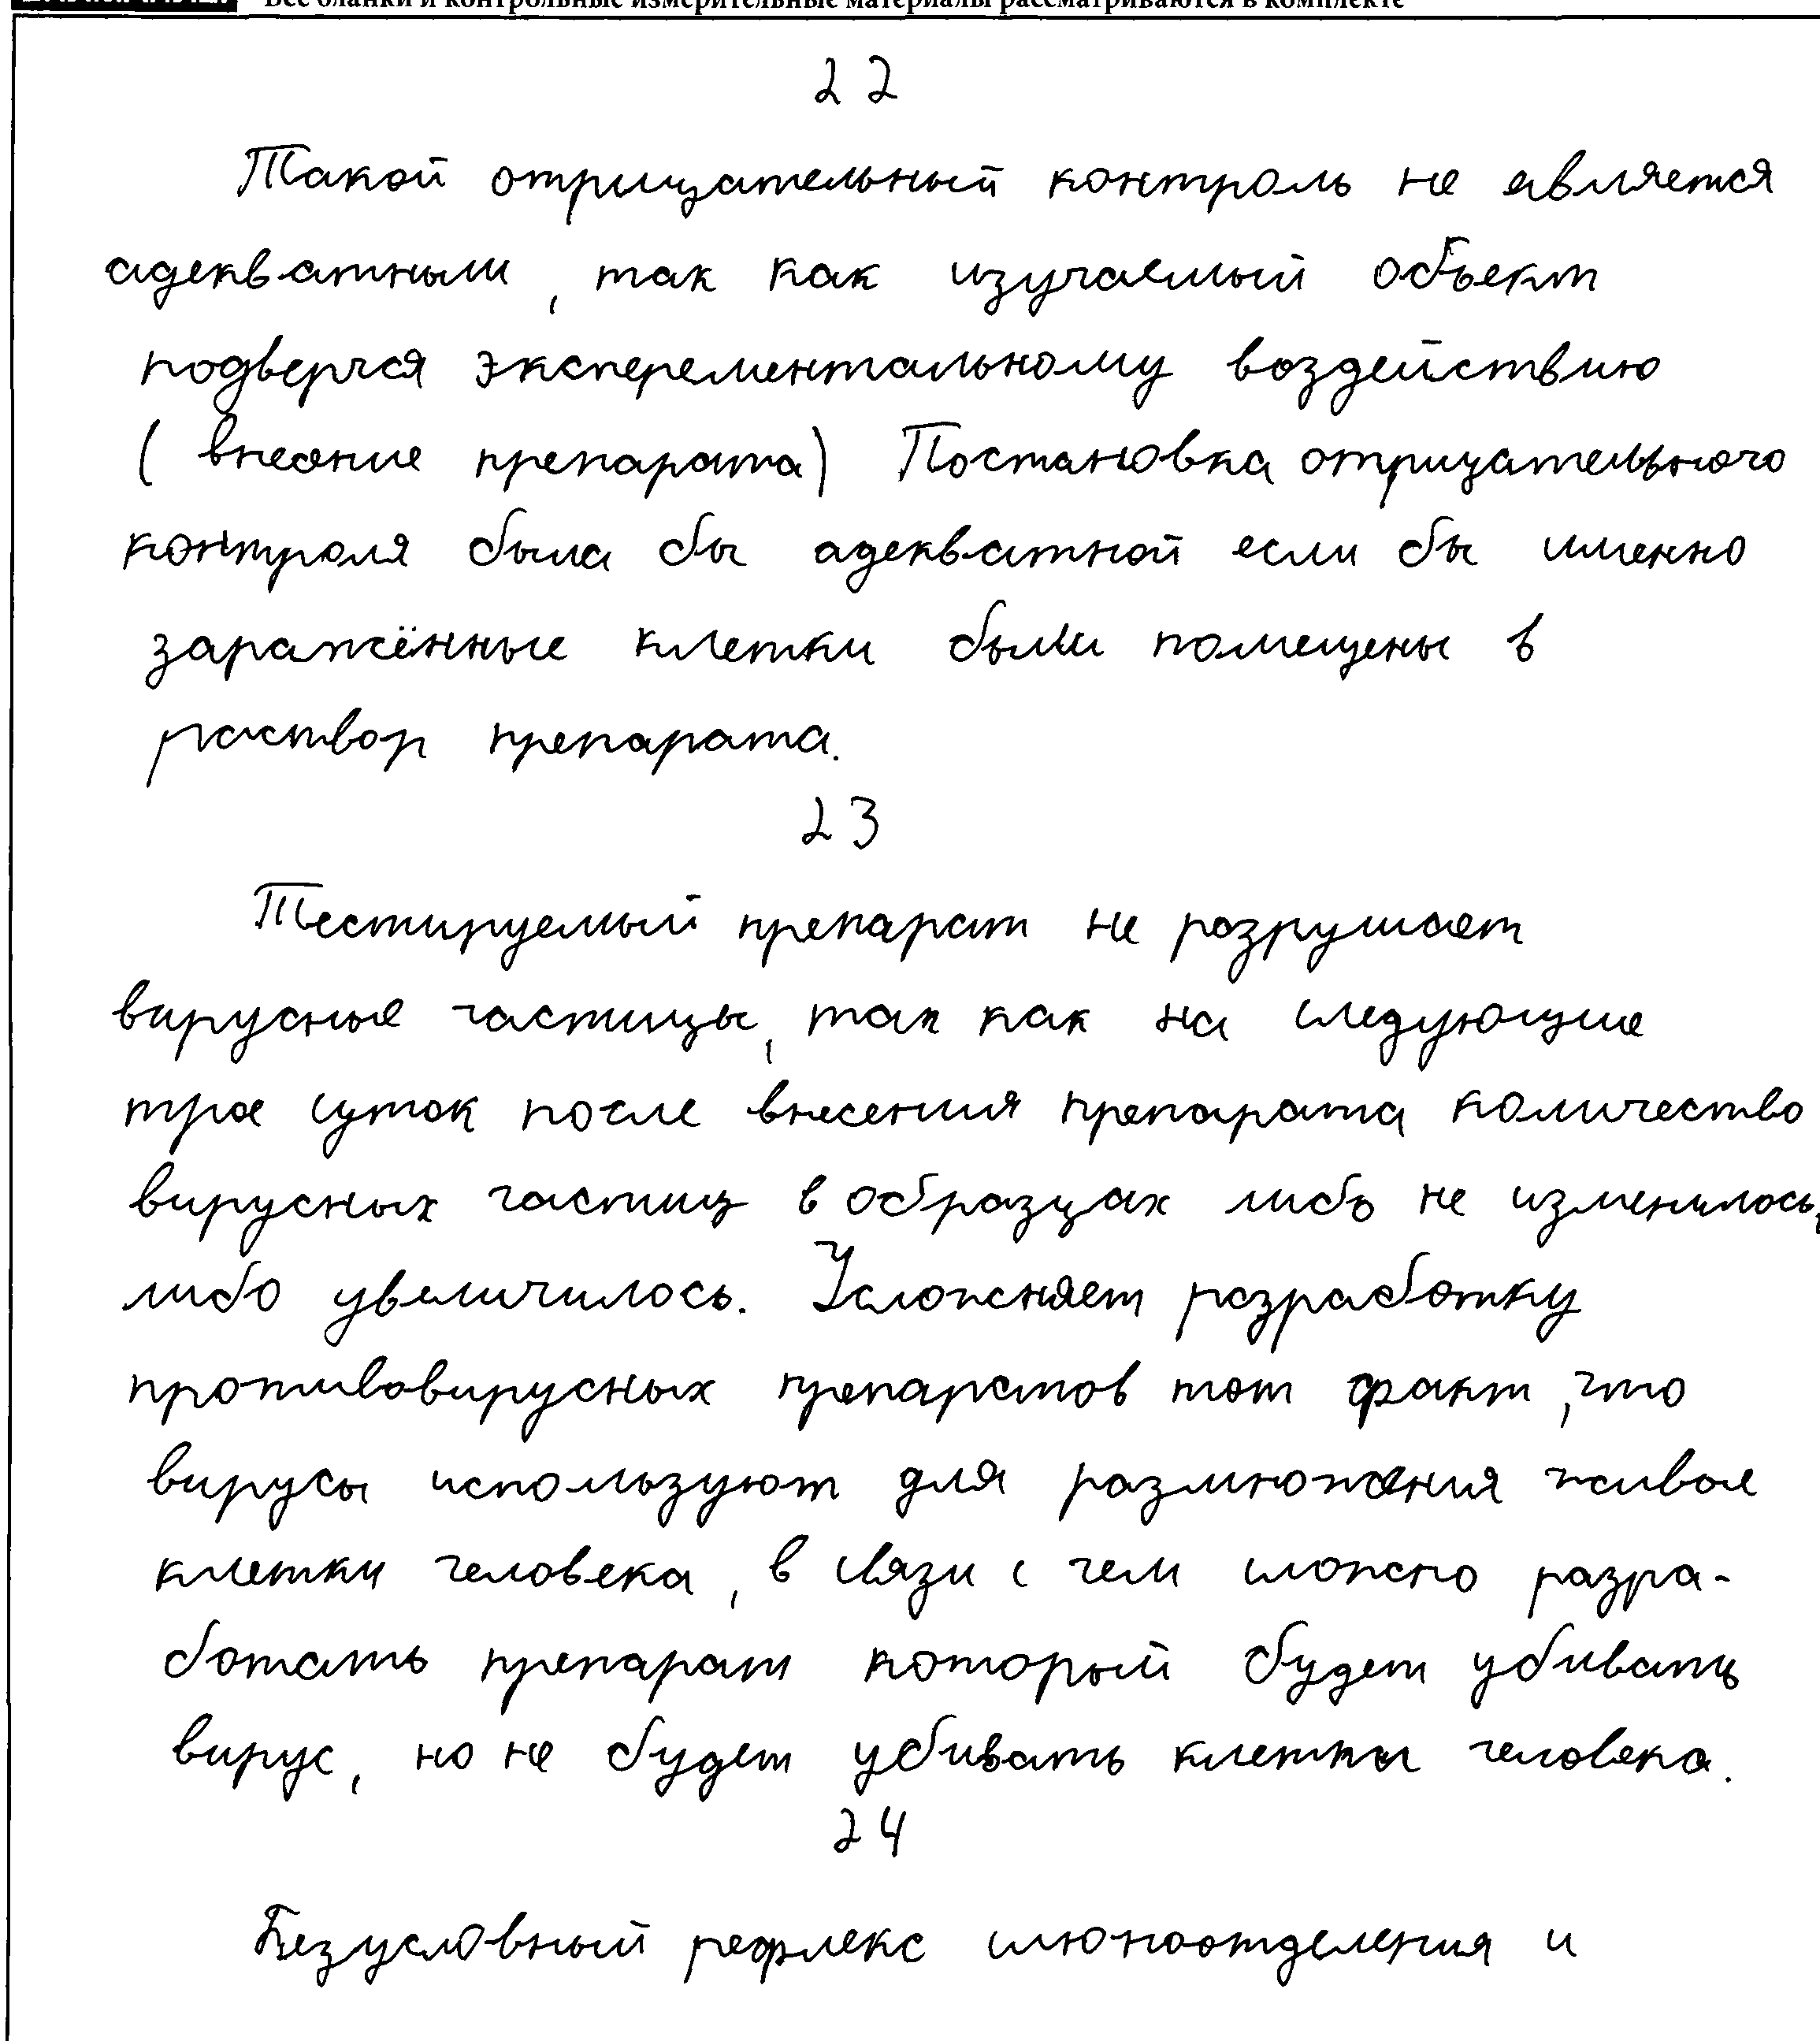 Все бланки и контрольные измерительные материалы рассматриваются в комплекте
22
Такой отрицательный контроль не является
адекватным, так как изучаемый объект
подвергся эксперементальному воздействию
(внесение препарата) Постановка отрицательного
контроля была бы адекватной если бы именно
заражённые клетки были помещены в
раствор препарата.
23
Тестируемый препарат не разрушает
вирусные частицы, так как на следующие
трое суток после внесения препарата количество
вирусных частиц в образцах либо не изменилось,
либо увеличилось. Усложняет разработку
противовирусных препаратов тот факт, что
вирусы используют для размножения живые
клетки человека, в связи с чем сложно разра-
ботать препарат который будет убивать
вирус, но не будет убивать клетки человека.
24
Безусловный рефлекс слюноотделения и